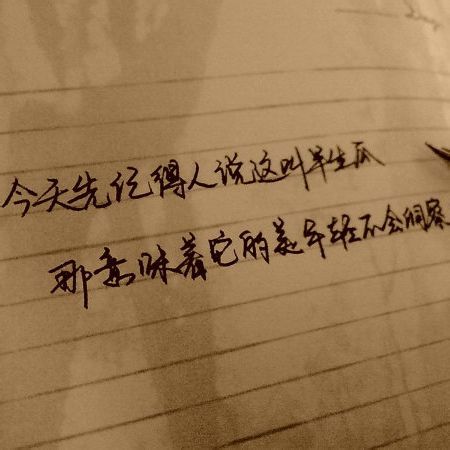 今天先记得人说这叫半生瓜
那意味着它的美年轻不会洞察